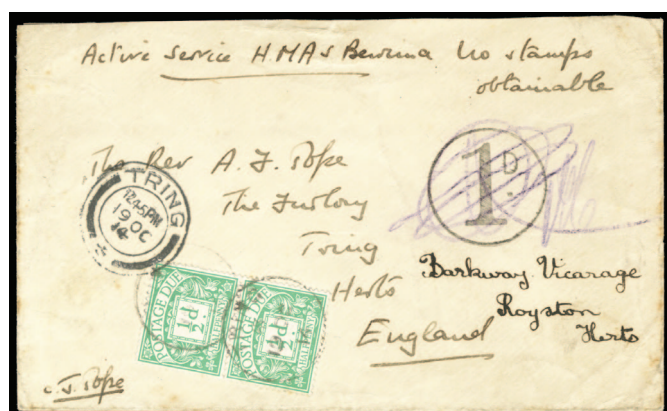 Active Service H.M.A.S Berrima No stamps
obtainable
The Rev A. J. Pope
The Furlong
Tring
Herts
England
TRING
12.45PM
19 OC
14
1D.
Barkway Vicarage
Royston
Herts
POSTAGE DUE
½d
HALFPENNY
POSTAGE DUE
½d
HALFPENNY
J. Pope